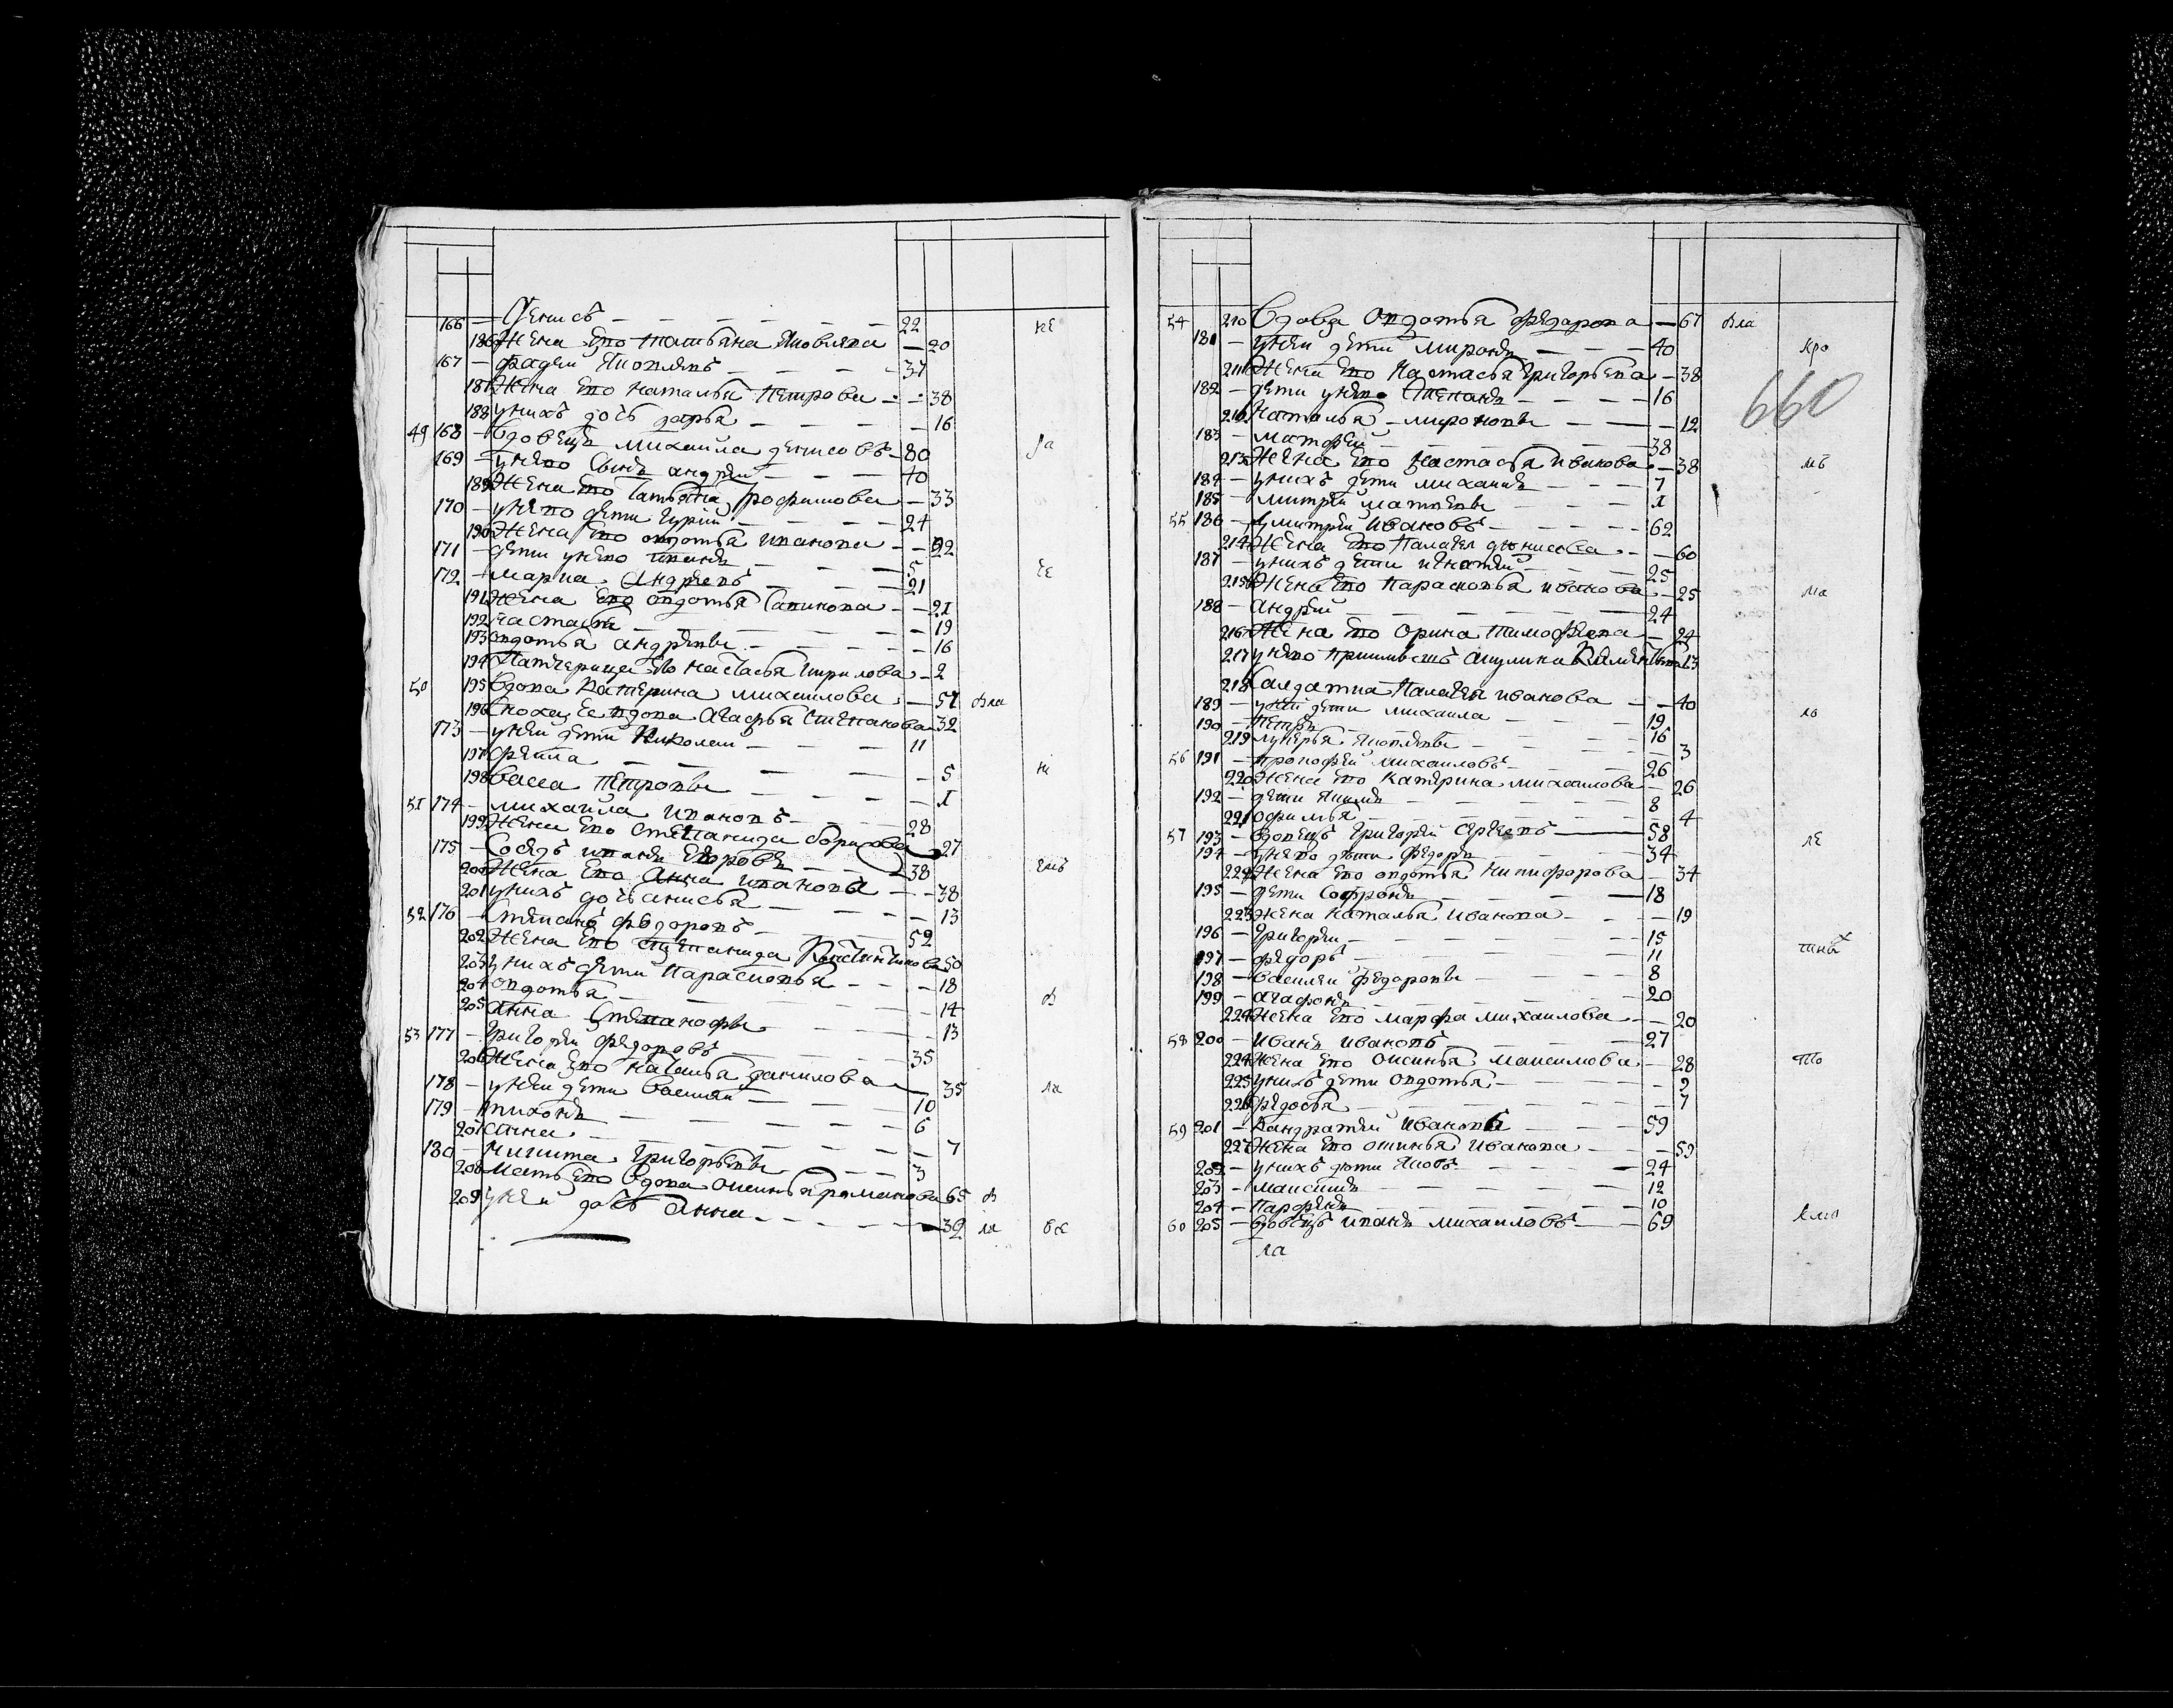 166 — Денисъ — 22
186 Жена Ево татьяна Яковлева — 20
167 — фадеи Яковлевъ — 37
187 Жена Ево наталья Петрова — 38
188 унихъ дочь дарья — 16
49 168 — Вдовецъ михаила денисовъ — 80
169 — унево сынъ андреи — 40
189 Жена Ево Татьяна трофимова — 33
170 — унево дети гурїи — 24
190 Жена Ево овдотья иванова — 22
171 — дети унево иванъ — 5
172 — марка андреевъ — 21
191 Жена Ево овдотья Савинова — 21
192 настасья — 19
193 овдотья андреевы — 16
194 Патчерица Ево настасья гирилова — 2
50 195 Вдова Катерина михаилова — 57 вла
196 сноха Ее вдова Агафья степанова — 32
173 — унеи дети Николаи — 11
197 фекла — 5
198 Васса Петровы — 1
51 174 — михаила ивановъ — 28
199 Жена Ево степанида борисова — 27
175 — Соседъ иванъ Егоровъ — 38
200 Жена Ево Анна иванова — 38
201 унихъ дочь анисья — 13
52 176 — Степанъ федоровъ — 52
202 Жена Ево степанида Констинтинова 50
203 унихъ дети Парасковья — 18
204 овдотья — 14
205 Анна Степановы — 13
53 177 — Григореи федоровъ — 35
206 Жена Ево наталья данилова — 35
178 — унеи дети Василеи — 10
179 — тихонъ — 6
207 анна — 7
180 — Никита Григорьевы — 3
208 Мать Ево Вдова оксинья романова 65 в
209 унеи дочь Анна — 39 ла
54 210 Вдова Овдотья федарова — 67 вла
181 — унеи дети миронъ — 40 кро
660
211 Жена Ево Настасья григорьева — 38
182 — дети унево Степанъ — 16
212 Наталья мироновы — 12
183 — матфеи — 38
213 Жена Ево Настасья иванова — 38
184 — унихъ дети михаила — 7
185 — митреи матвеевы — 1
55 186 — Дмитреи Ивановъ — 62
214 Жена Ево Палагея денисова — 60
187 — унихъ дети игнатеи — 25
215 Жена Ево Парасковья иванова — 25 ма
188 — андреи — 24
216 Жена Ево Орина Тимофеева — 24
217 унево приимышъ акулина 13
218 Салдатка Палагея иванова — 40
189 — унеи дети михаила — 19
190 — Петръ — 16
219 лукерья Яковлевы — 3
56 191 — Прокофеи михаиловъ — 26
220 Жена Ево Катерина михаилова — 26
192 — дети Якимъ — 8
221 офимья — 4
57 193 — вдовецъ григореи сергеевъ — 58
194 — унево дети федоръ — 34
222 Жена Ево овдотья Никифорова — 34
195 — дети Софронъ — 18
223 Жена наталья Иванова — 19
196 — григореи — 15
197 — федоръ — 11
198 — василеи федоровы — 8
199 — агафонъ — 20
224 Жена Ево марфа михаилова — 20
58 200 — Иванъ Ивановъ — 27
224 Жена Ево Оксинья максимова — 28
225 унихъ дети овдотья — 9
226 федосья — 7
59 201 — Кандратеи Ивановъ — 59
227 Жена Ево оксинья Иванова — 59
202 — унихъ дети Яковъ — 24
203 — максимъ — 12
204 — Парфенъ — 10
60 205 — вдовецъ иванъ михаиловъ — 69